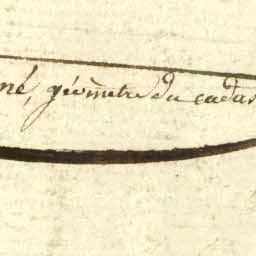 né, géomètre du cadas